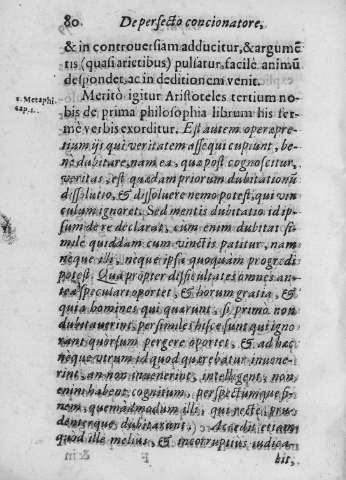 80. De perfecto concionatore,
& in controuersiam adducitur, & argumē
tis (quasi arietibus) pulsatur, facilè animū
despondet, ac in deditionem venit.
2. Metaphi.
cap. 1.
Meritò igitur Aristoteles tertium no-
bis de prima philosophia librum his fer-
mè verbis exorditur. Est autem operæpre-
tium ijs qui veritatem assequi cupiunt, be-
ne dubitare, nam ea, quæ post cognoscitur,
veritas, est quædam priorum dubitationū
dissolutio, & dissoluere nemo potest, qui vin
culum ignoret. Sed mentis dubitatio id ip-
sum de re declarat, cum enim dubitat si-
mile quiddam cum vinctis patitur, nam
neque illi, neque ipsa quoquam progredi
potest. Quapropter difficultates omnes an-
tea speculari oportet, & horum gratia, &
quia homines qui quærunt, si primo non
dubitauerint, persimiles hisce sunt qui igno
rant quorsum pergere oportet, & ad hæc
neque vtrum id quod quærebatur inuene-
rint, an non inuenerint, intelligent, non
enim habent cognitum, perspectumque fi-
nem, quemadmodum illi, qui recte, pru-
denterque dubitarunt. Accedit etiam
quòd ille melius, & incorruptius iudica-
bit,